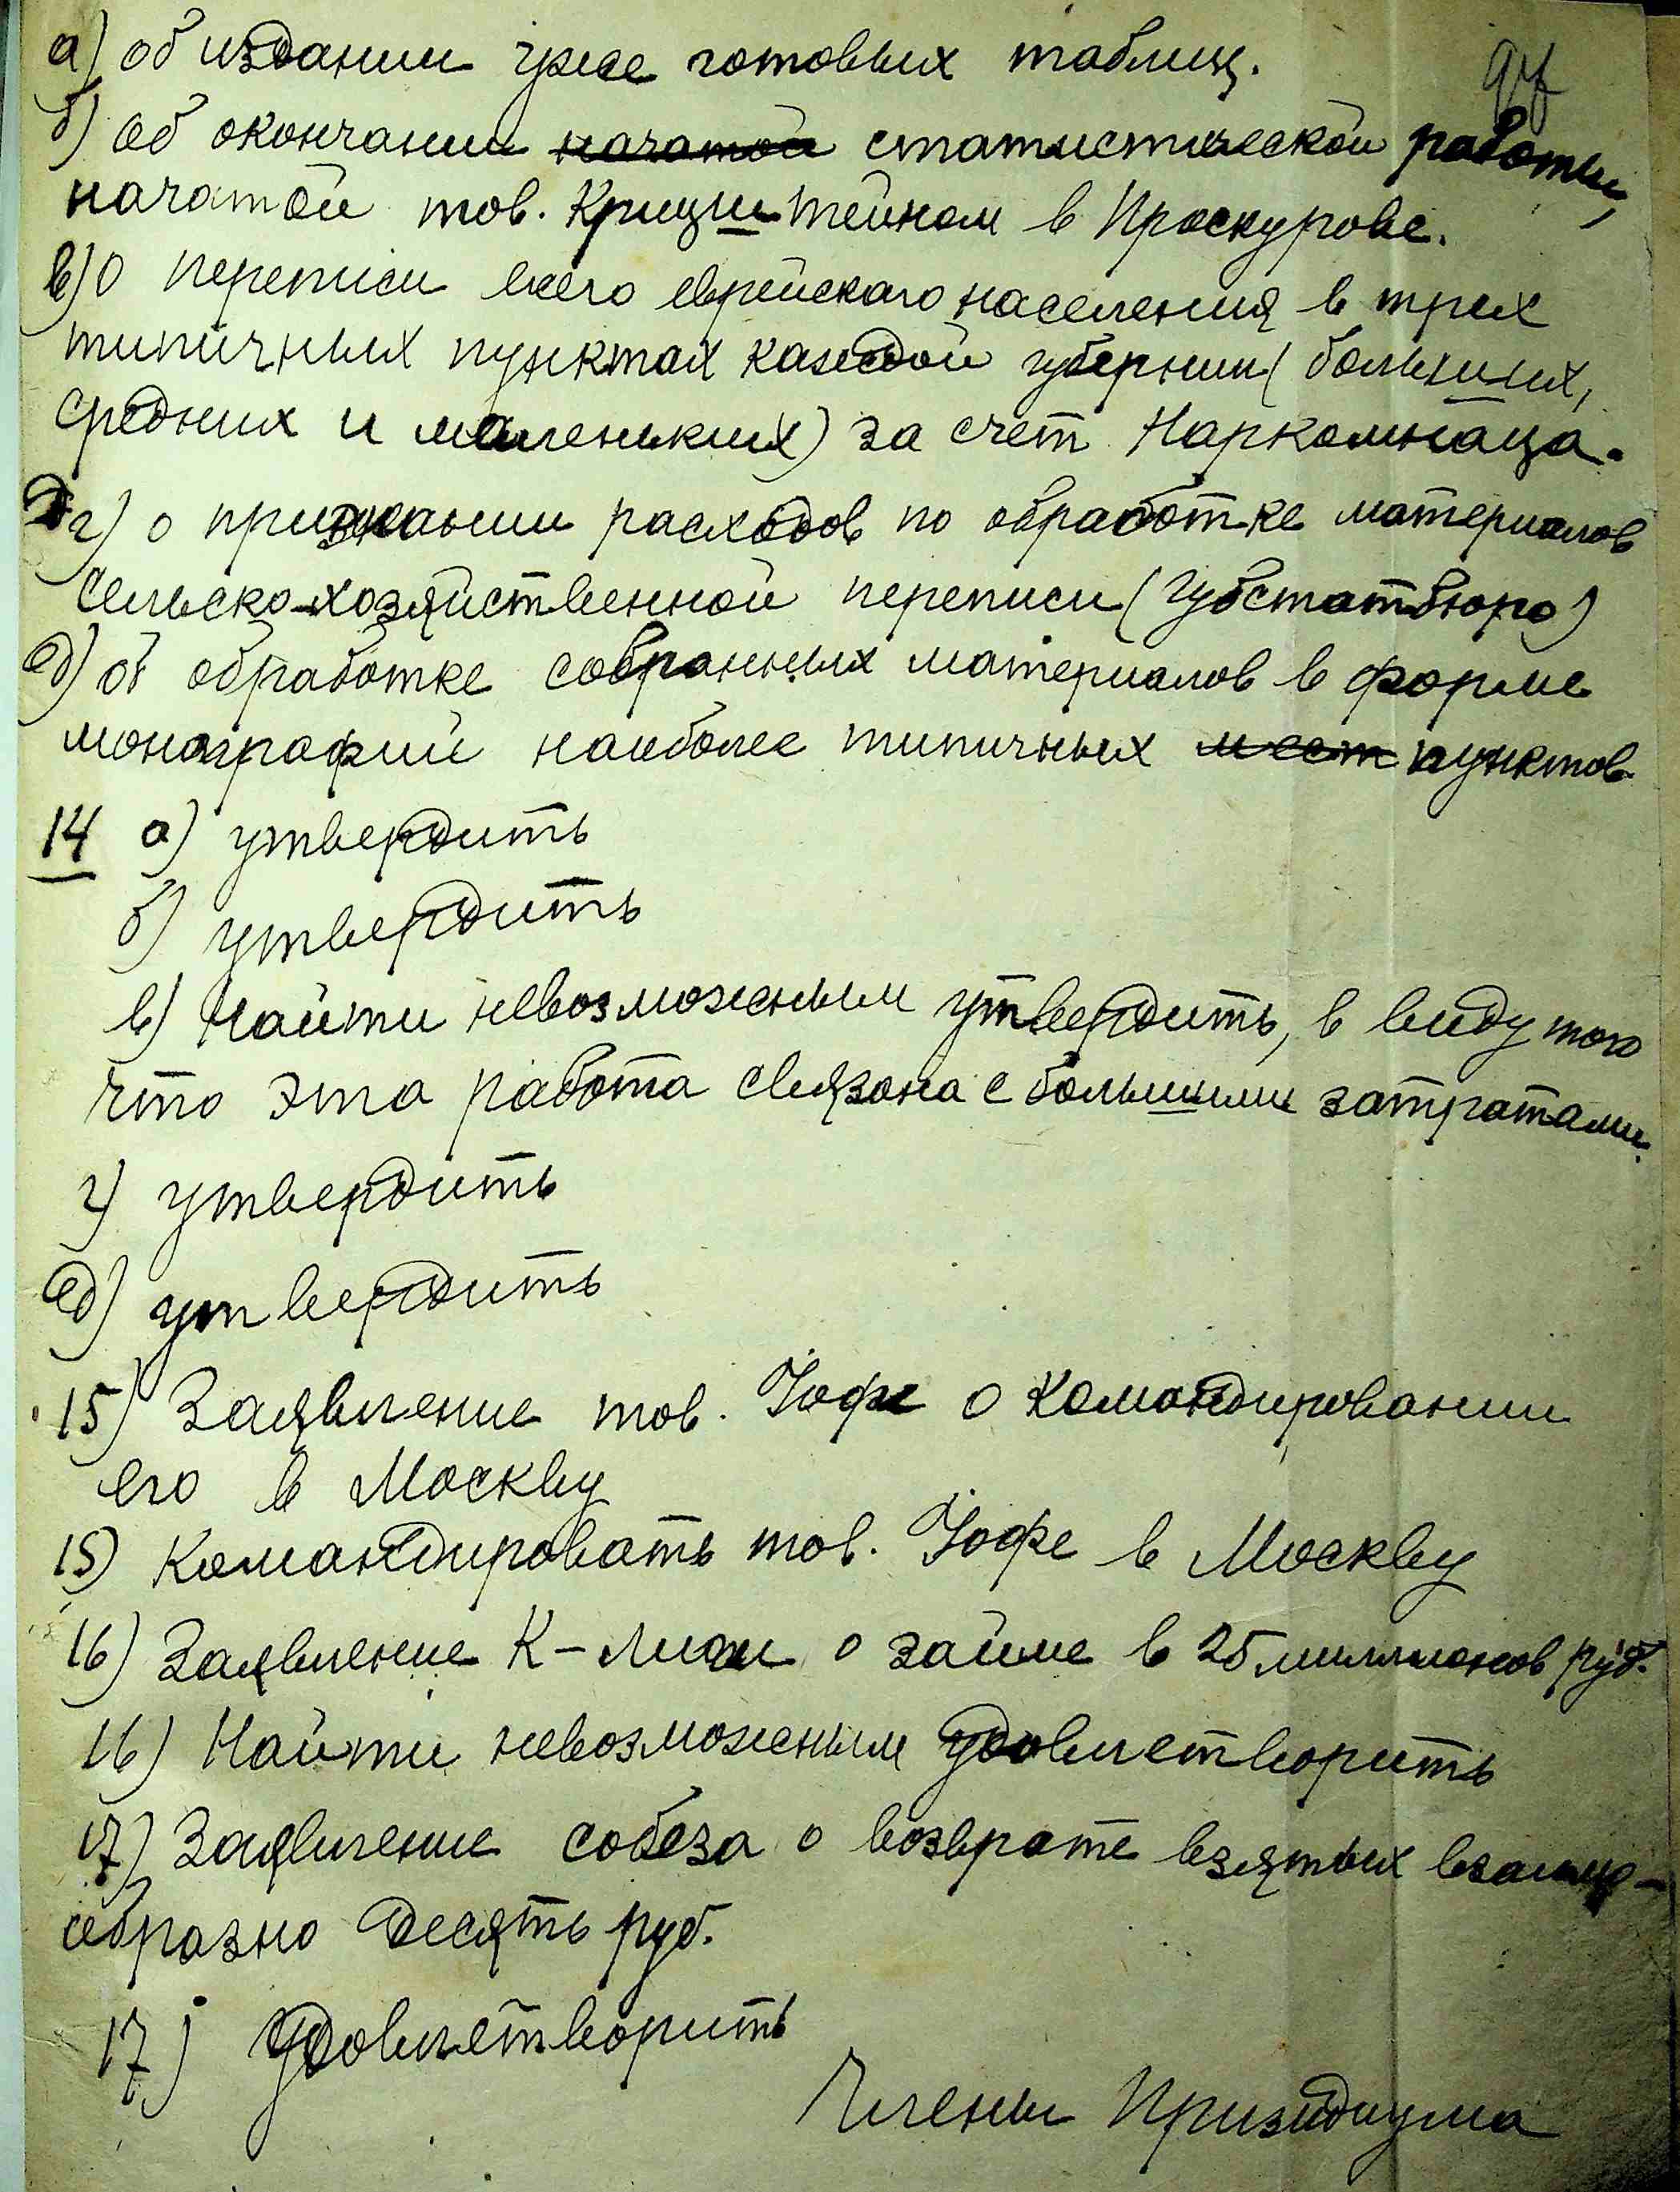 а) об издании уже готовых таблиц.
б) об окончании начатой статистической работы,
начатой тов. Крицштейном в Проскурове.
в) о переписи всего еврейского населения в трех
типичных пунктах каждой губернии (больших,
средних и маленьких) за счет Наркомнаца.
г) о признании расходов по обработке материалов
сельско-хозяйственной переписи (Губстатбюро)
д) об обработке собранных материалов в форме
монографий наиболее типичных мест пунктов
14 а) утвердить
б) утвердить
в) Найти невозможным утвердить, в виду того
что эта работа связана с большими затратами.
г) утвердить
д) утвердить
15) Заявление тов. Иофе о командировании
его в Москву
15) Командировать тов. Иофе в Москву
16) Заявление К-Лиги о займе в 25 миллионов руб.
16) Найти невозможным удовлетворить
17) Заявление собеза о возврате взятых взаимо-
образно десять руб.
17) Удовлетворить
Члены Призидиума